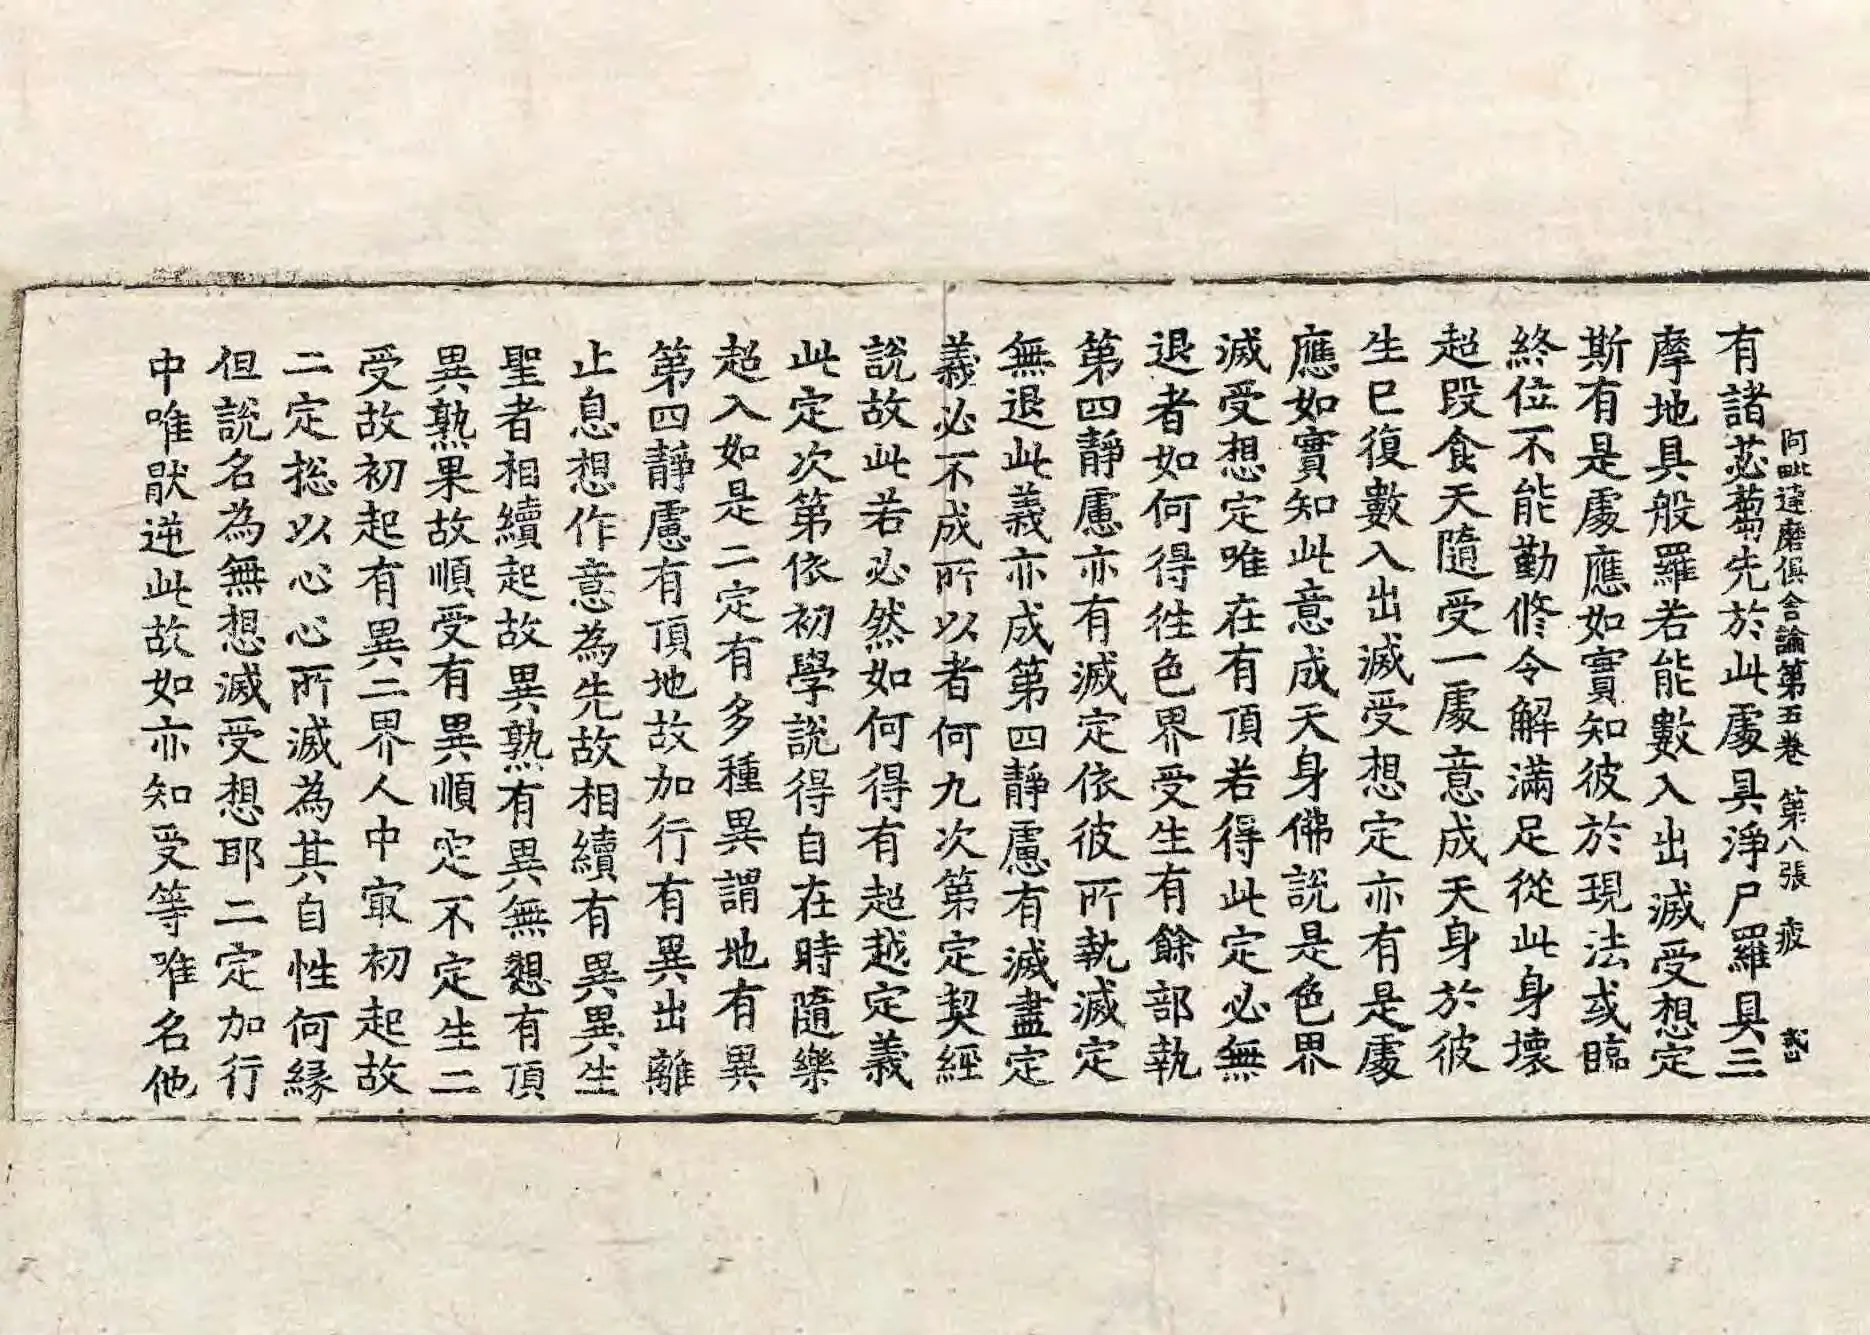 阿毗達磨俱舍論第五卷 第八張 疲
有諸苾蒭先於此處具淨尸羅具三
摩地具般羅若能數入出滅受想定
斯有是處應如實知彼於現法或臨
終位不能勤修令解滿足從此身壞
超段食天隨受一處意成天身於彼
生已復數入出滅受想定亦有是處
應如實知此意成天身佛說是色界
滅受想定唯在有頂若得此定必無
退者如何得往色界受生有餘部執
第四靜慮亦有滅定依彼所執滅定
無退此義亦成第四靜慮有滅盡定
義必不成所以者何九次第定契經
說故此若必然如何得有超越定義
此定次第依初學說得自在時隨樂
超入如是二定有多種異謂地有異
第四靜慮有頂地故加行有異出離
止息想作意為先故相續有異異生
聖者相續起故異熟有異無想有頂
異熟果故順受有異順定不定生二
受故初起有異二界人中冣初起故
二定捴以心心所滅為其自性何緣
但說名為無想滅受想耶二定加行
中唯猒逆此故如亦知受等唯名他